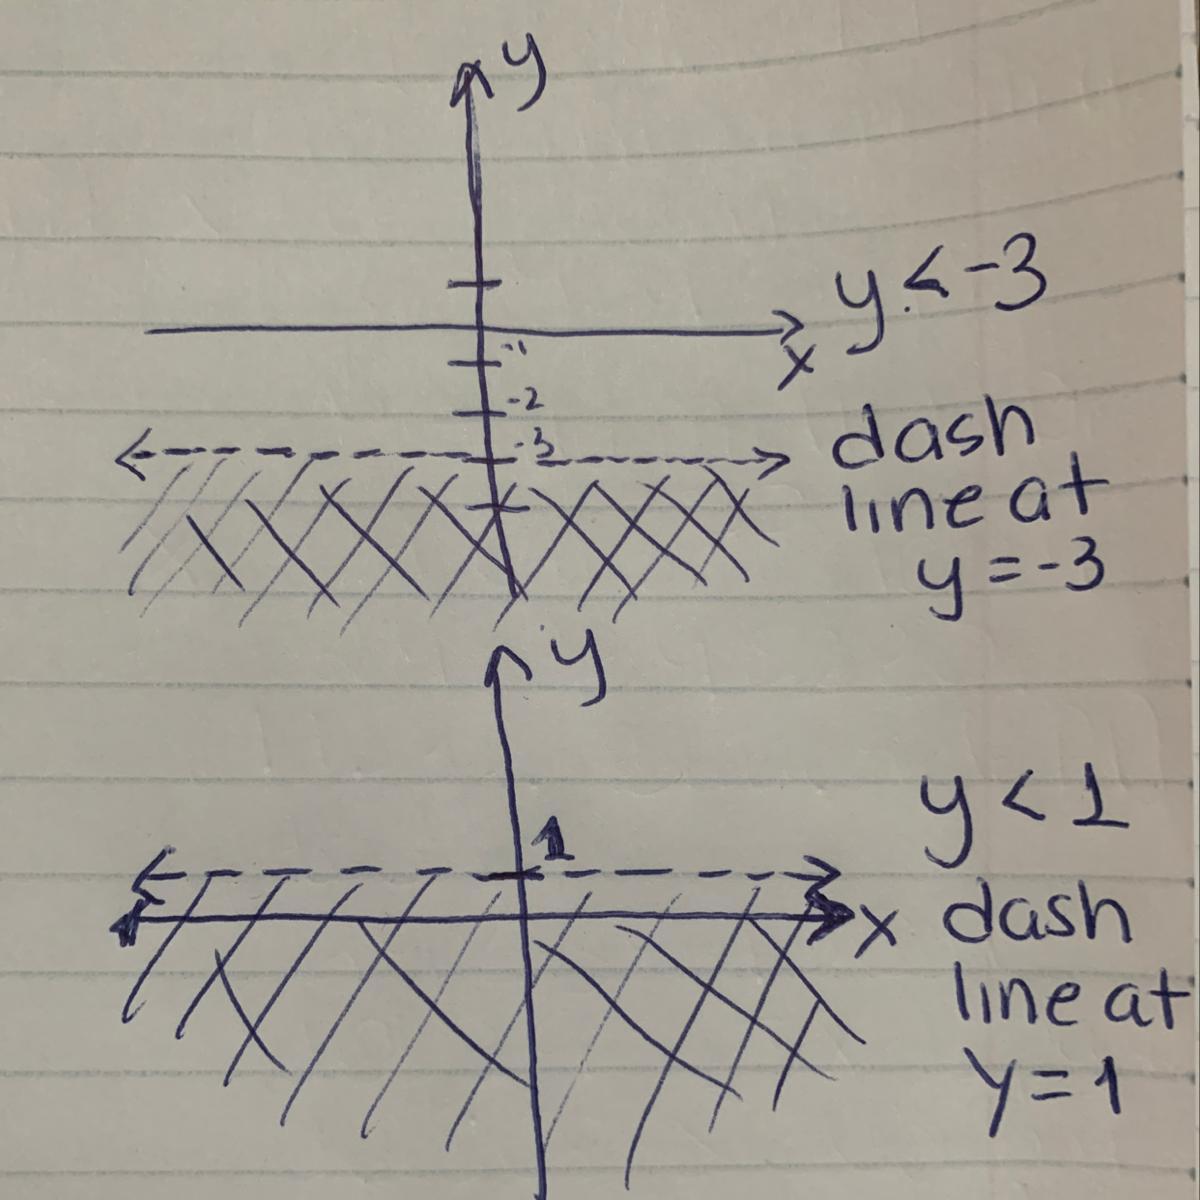 y
y < -3
-1
x
-2
dash
-3
line at
y = -3
y
y < 1
1
x
dash
line at
y = 1